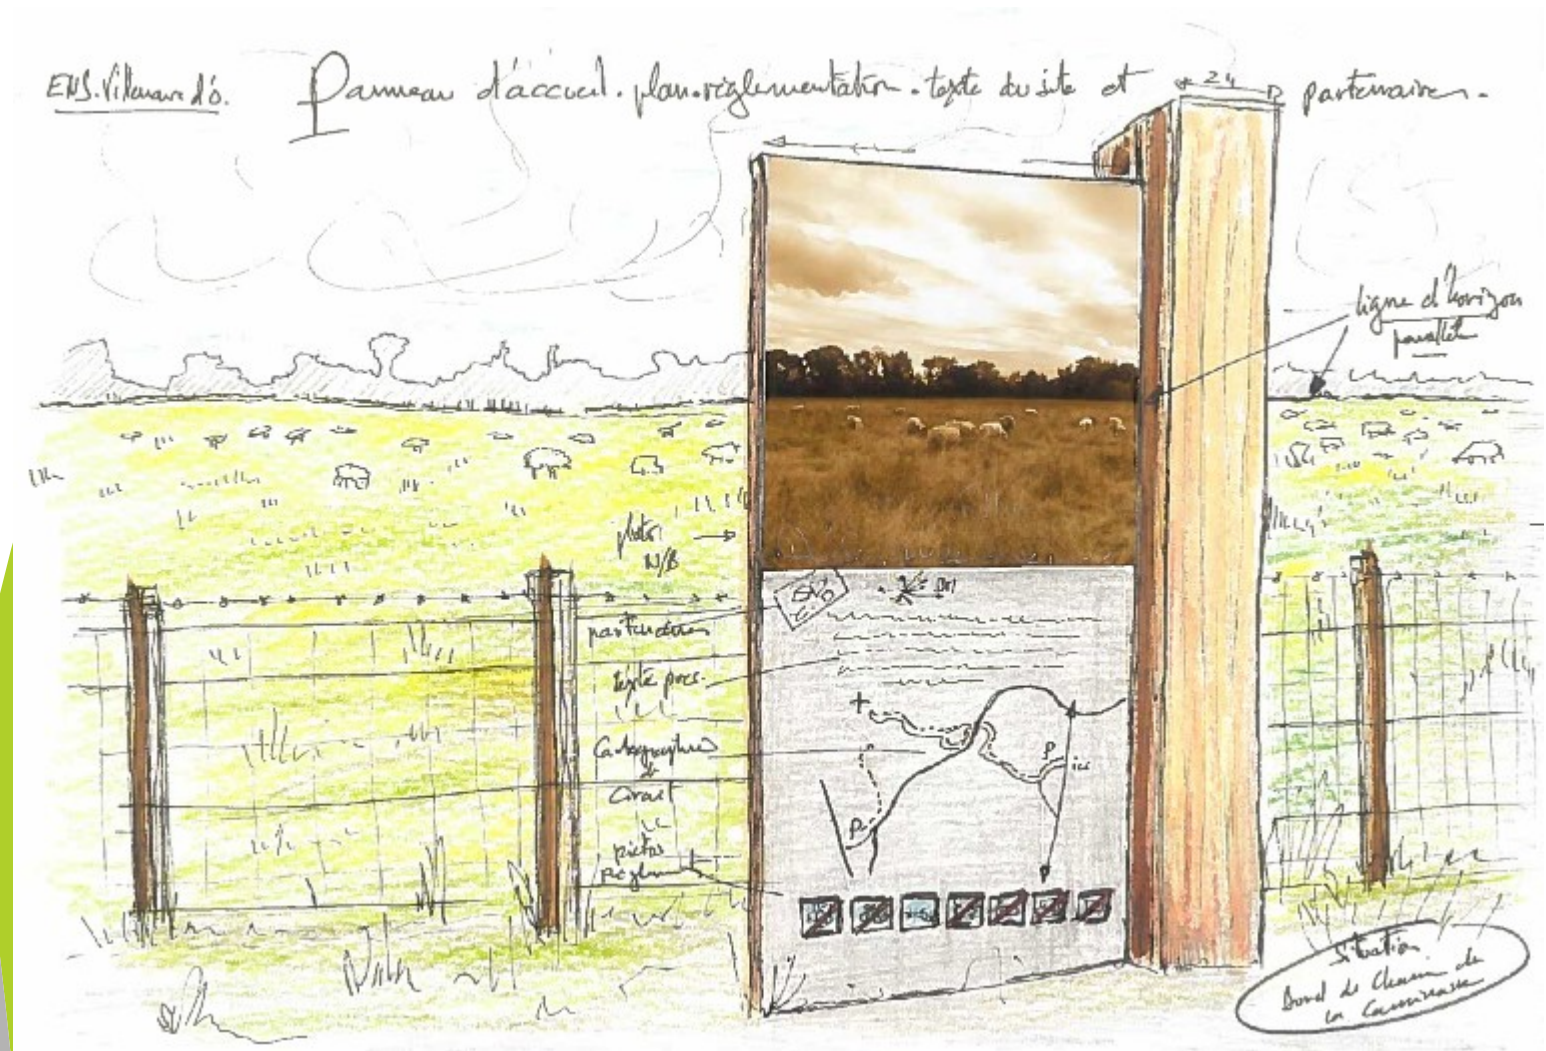 ENS. Villenave d'O.
Panneau d'accueil. plan. règlementation. texte du site et partenaires.
24
ligne d'horizon
parallèle
photo
N/B
partenaires
texte pres.
Cartographie
&
Circuit
pictos
Règlement
P
ici
P
Situation
Bord de Chemin de
la